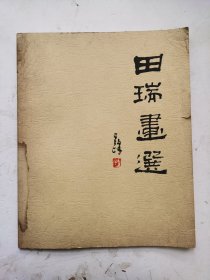 田瑞畫選